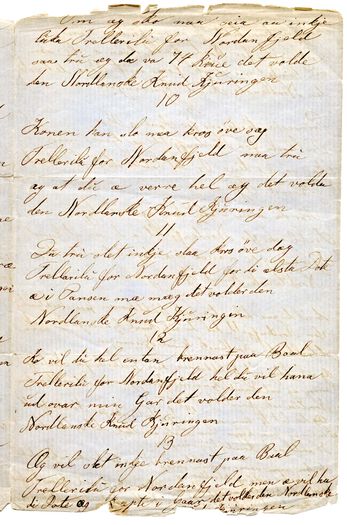 Om eg sko naa seia au intje
lita Trelleritu for Nordanfjeld
saa tru eg da va 74 Knue det volde
den Nordlanske Knud Kjuringen
10
Konen tan slo maa kros öve seg
Trelleritu for Nordanfjeld naa tru
eg at du æ verre hel eg det volde
den Nordlanske Knud Kjuringen
11
Du tru det intje slaa kros öve deg
Trelleritu for Nordanfjeld for du elsta Dot
æ i Pansen mæ maeg det volder den
Nordlanske Knud Kjuringen
12
Ko vil du hel entan brennast paa Baal
Trelleritu for Nordanfjeld hel du vil hana
ud ovar min Gar det volder den
Nordlenske Knud Kjuringen
13
Og vil det intje brennast paa Baal
Trelleritu for Nordanfjeld men æ vil ha
di Dote og i Gaar det volder den Nordlanske
Kjuringen